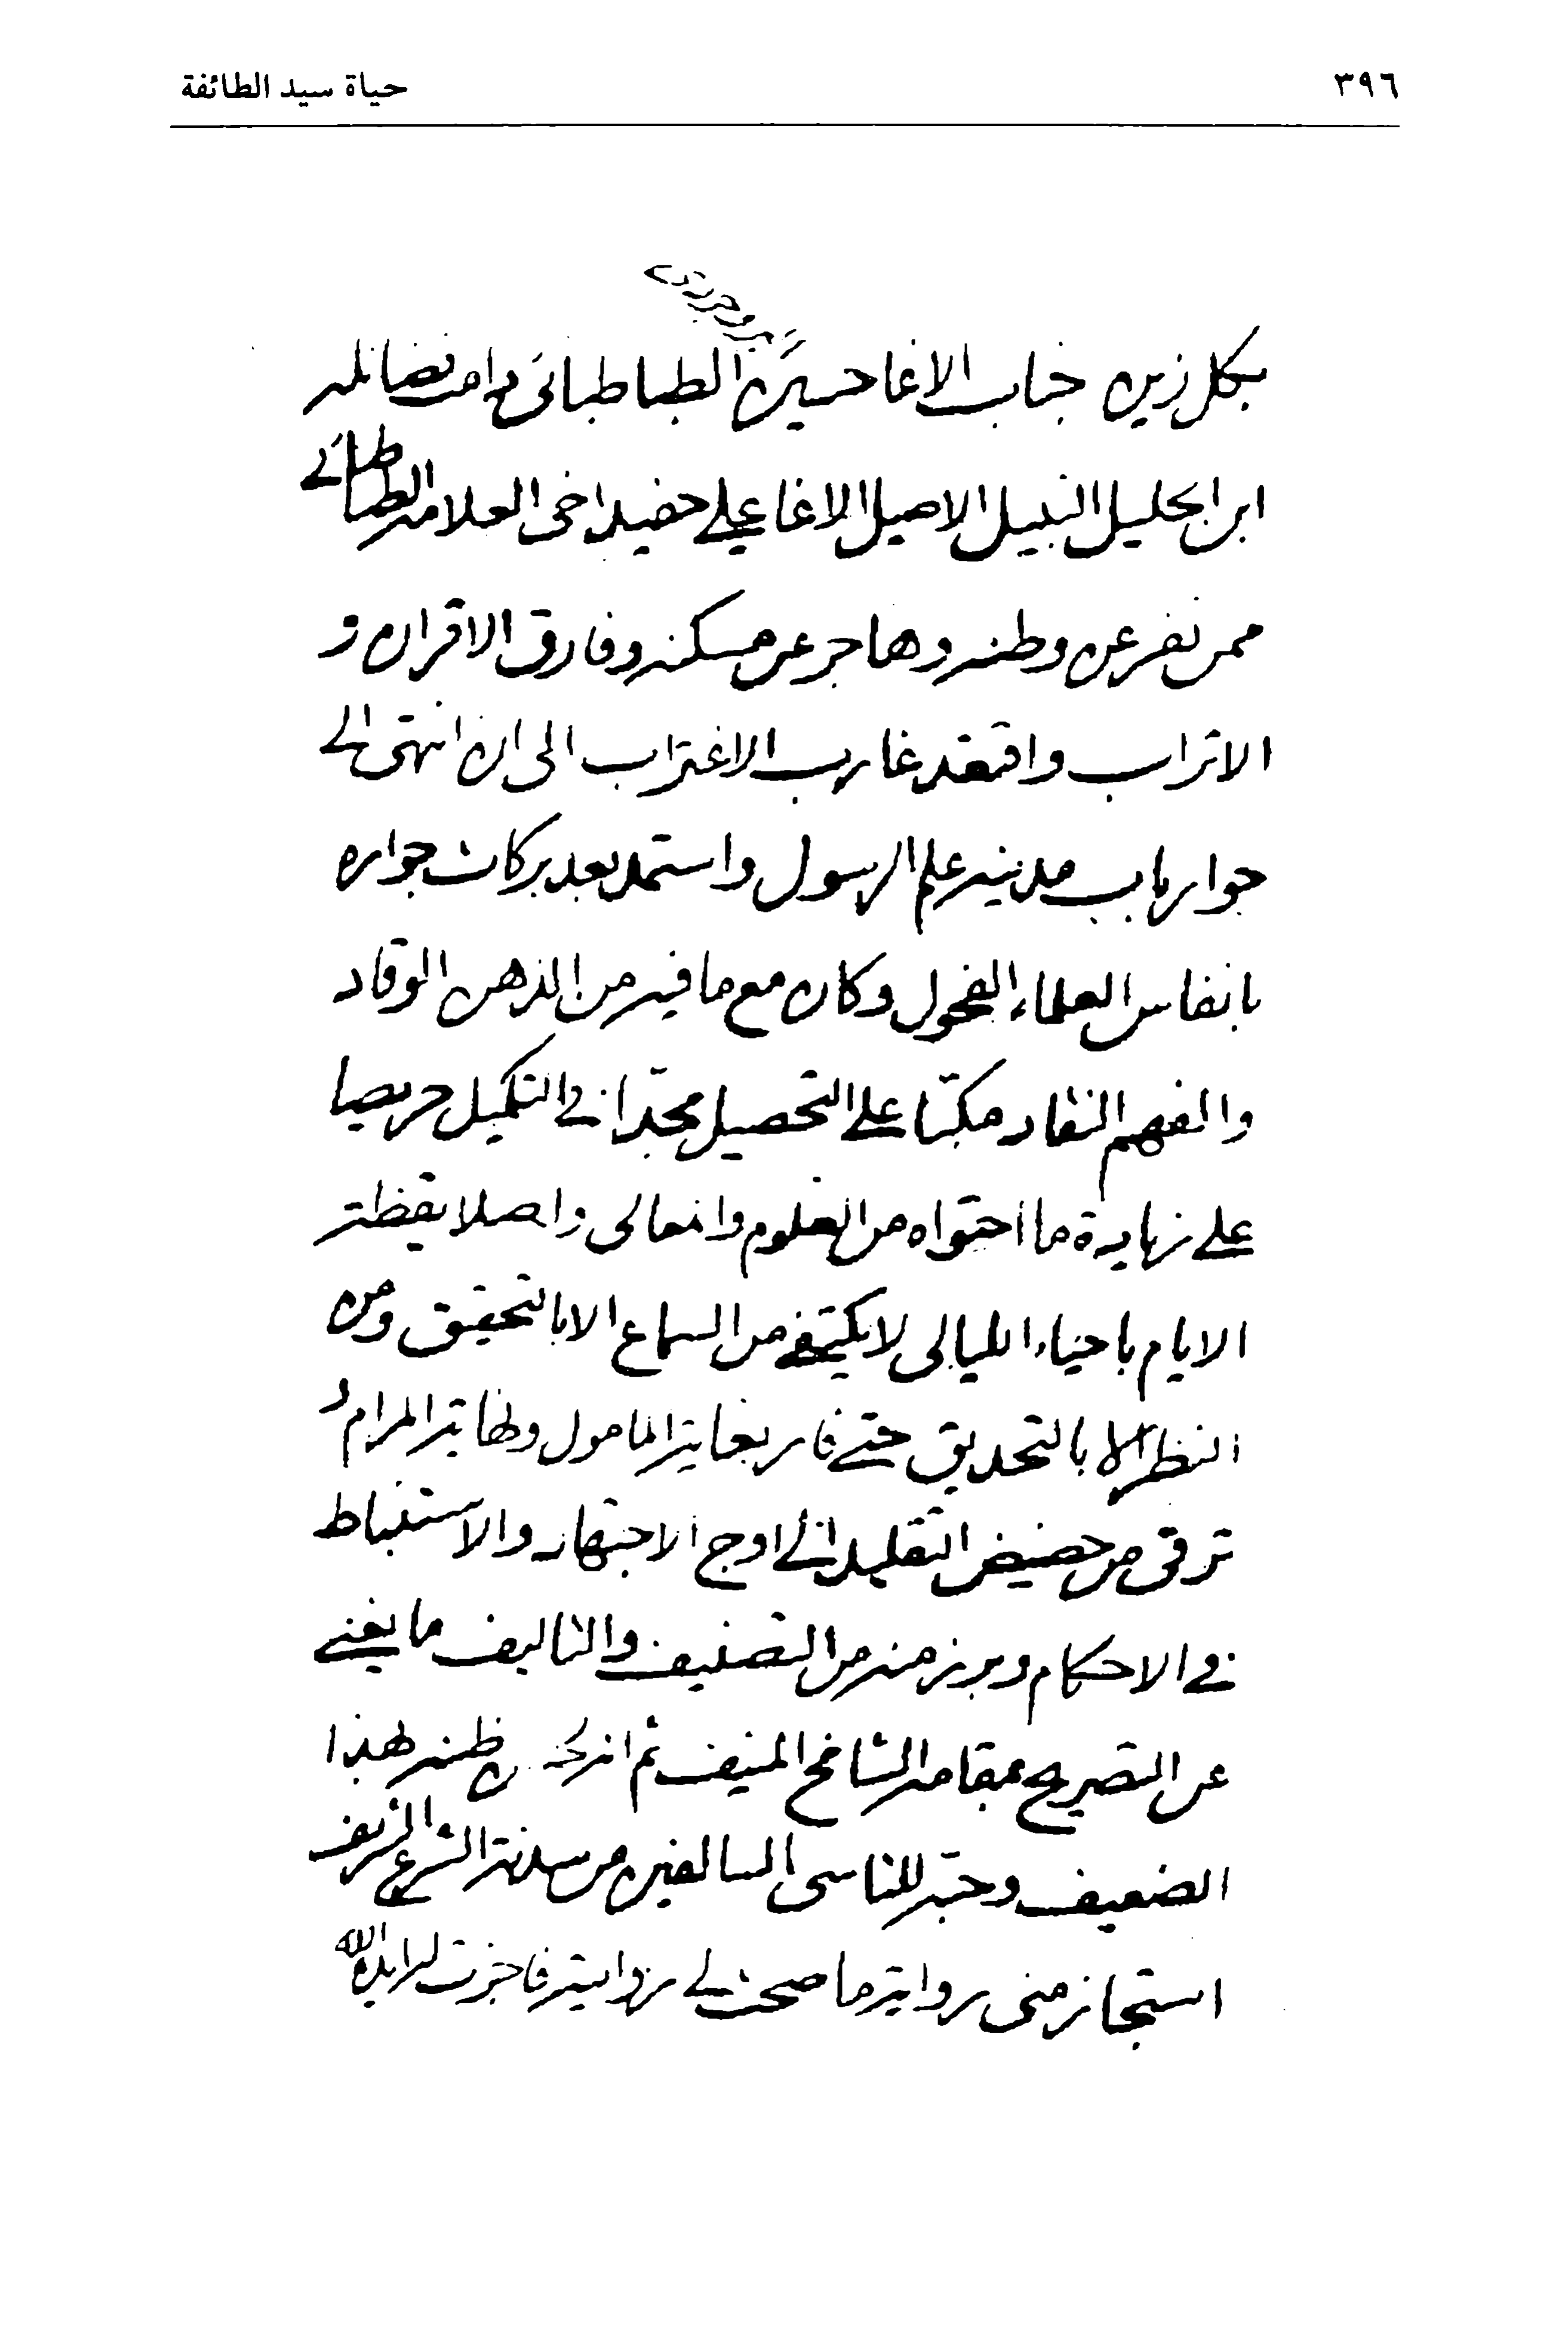 ٣٩٦
حياة سيد الطائفة
بكل زين جناب الاغا حسين الطباطبائي دامت فضائله
ابن الجليل النبيل الاصيل الاغا علي حفيد اخي العلامة الطباطبائي
ممن نفر عن وطنه وهاجر عن مسكنه وفارق الاقران و
الاتراب واقتعد غارب الاغتراب الى ان انتهى الى
جوار باب مدينة علم الرسول واستمد بعد بركات جواره
بانفاس العلماء الفحول وكان مع ما فيه من الذهن الوقاد
والفهم النقاد مكبّا على التحصيل مجدّا في التكميل حريصا
على زيادة ما احتواه من العلوم والمعالي واصلا يقظة
الايام باحياء الليالي لا يكتفي من السماع الا بالتحقيق ومن
النظر الا بالتحديق حتى فاز بغاية المامول ونهاية المرام و
ترقى من حضيض التقليد الى اوج الاجتهاد والاستنباط
في الاحكام وبرز منه من التصنيف والتاليف ما يغني
عن التصريح بمقامه الشامخ المنيف ثم انه ظنه بهذا
الضعيف وحبه للتاسي بالسالفين من سدنة الشرع الشريف
استجاز مني رواية ما صحت لي روايته فاجزت له ايده الله